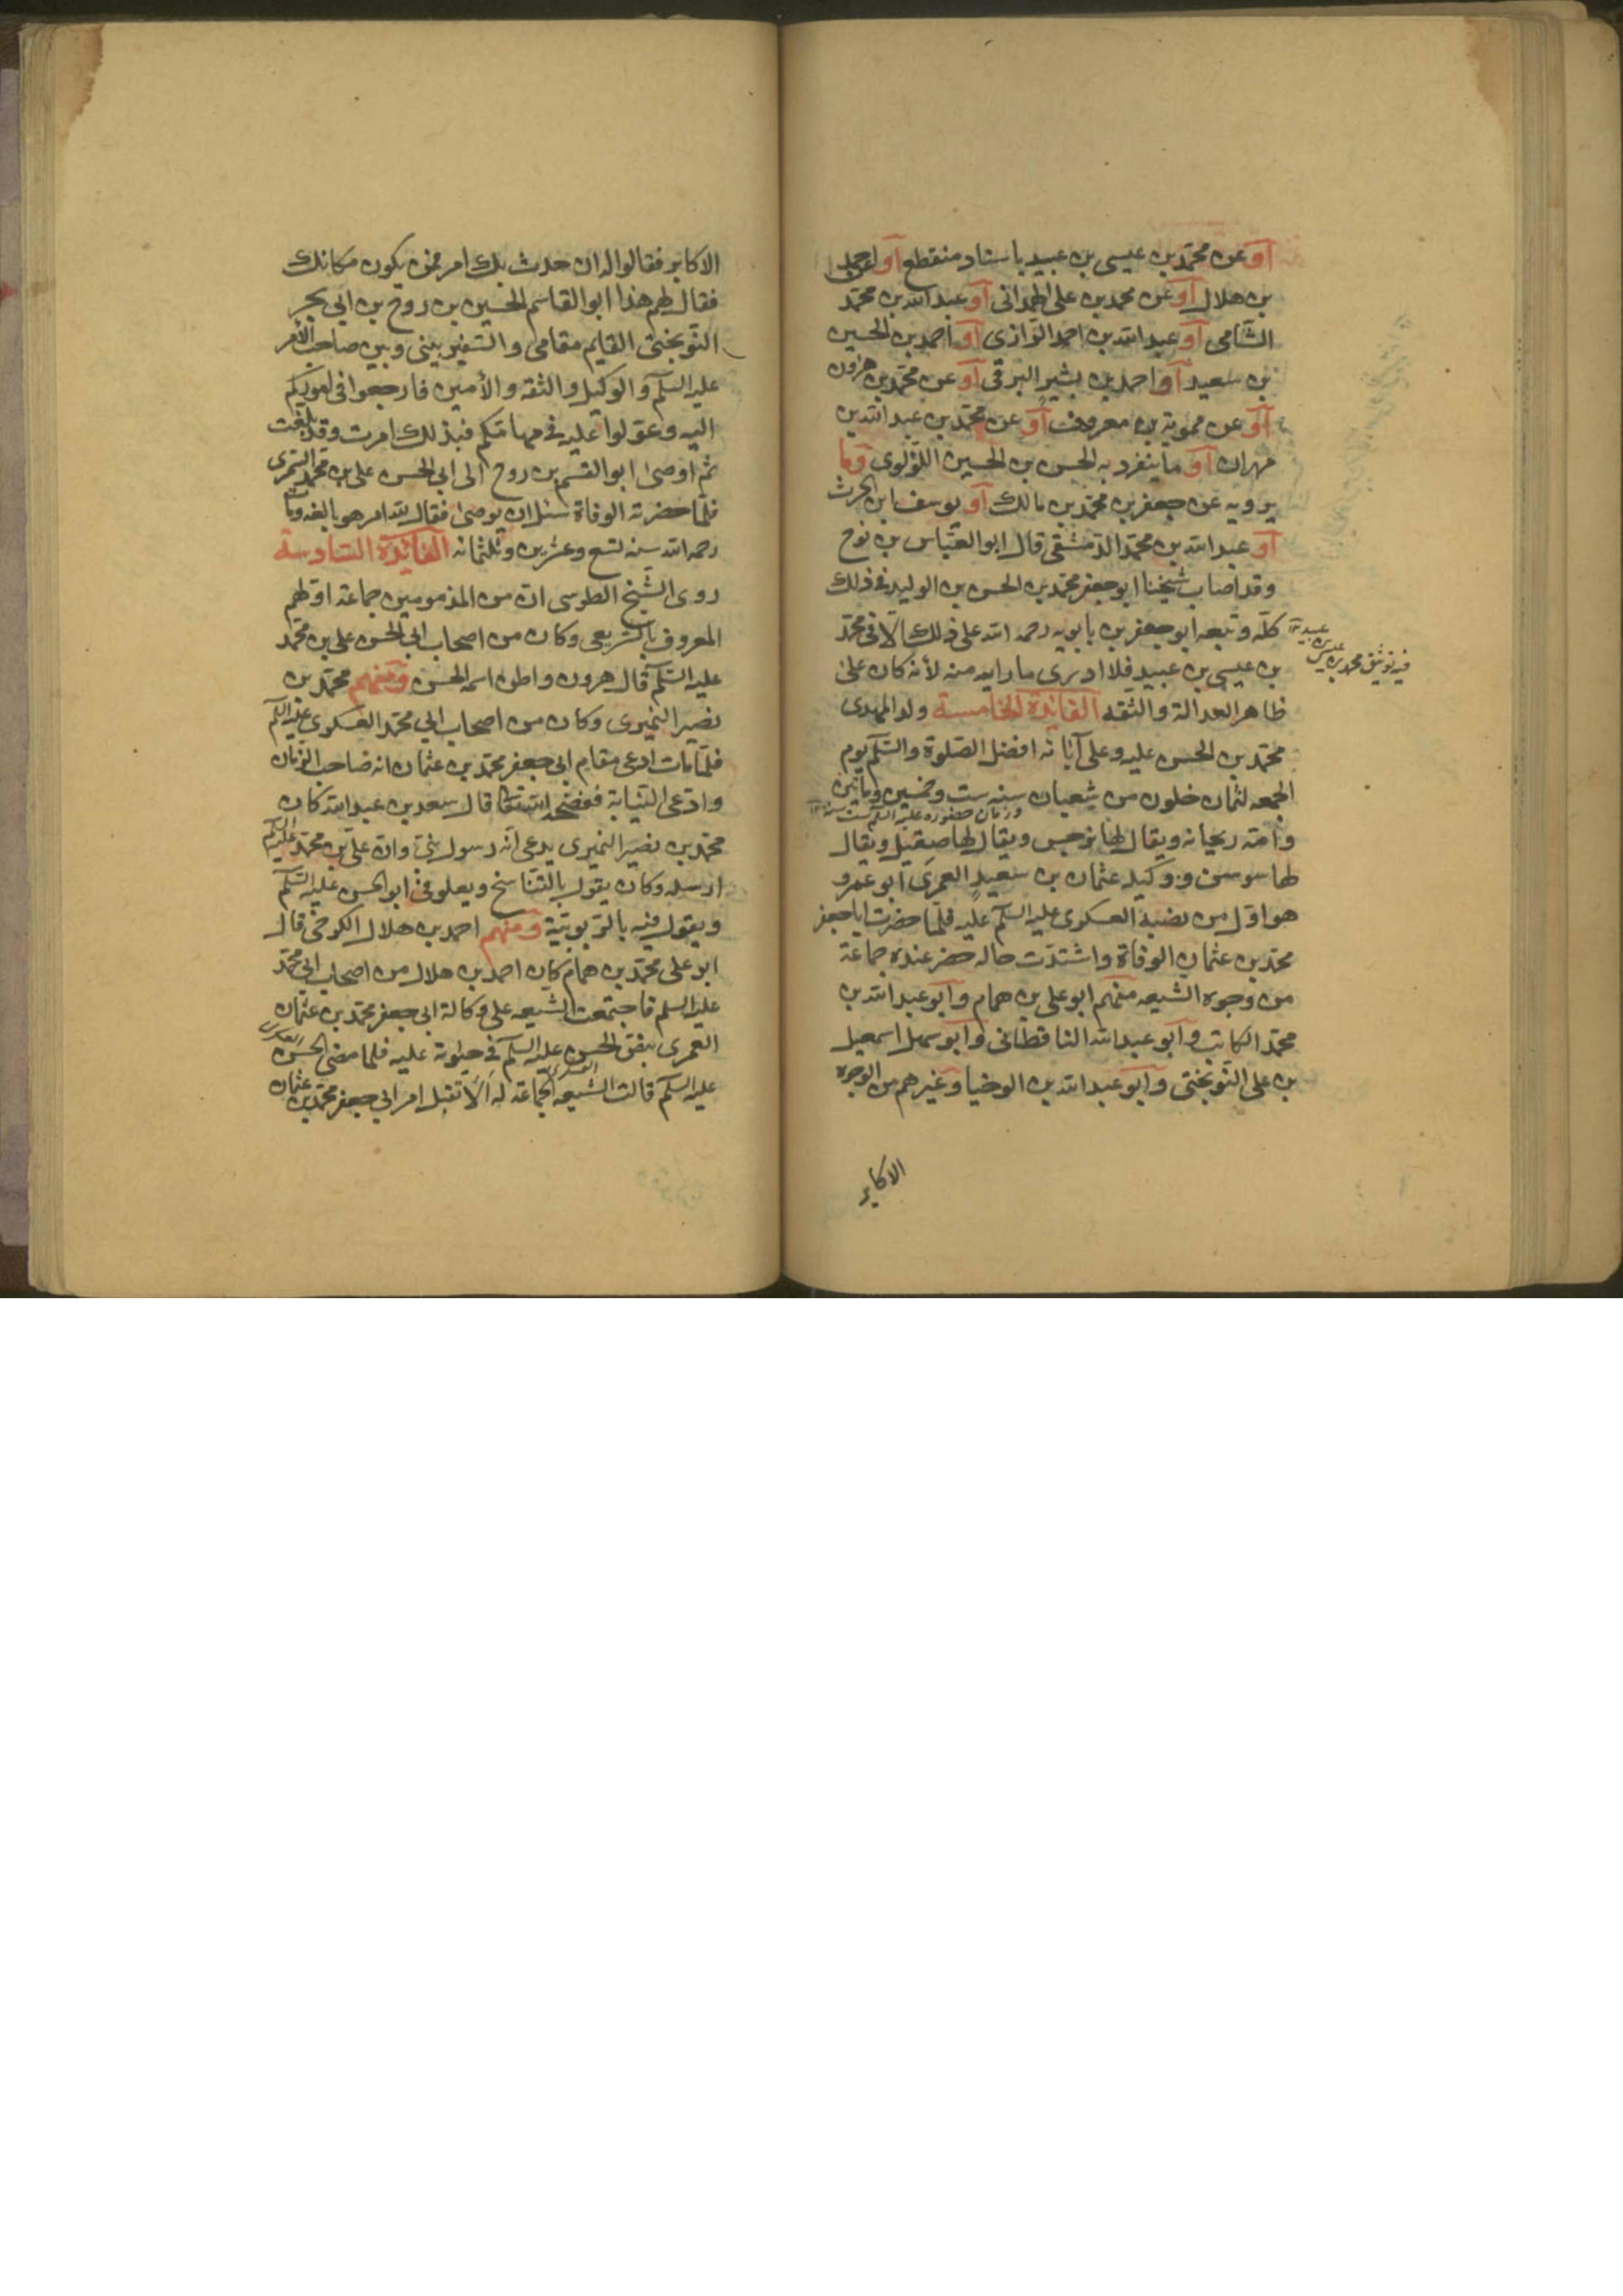 أو عن محمد بن عيسى بن عبيد باسناد منقطع أو احمد
بن هلال أو عن محمد بن على الهمدانى أو عبد الله بن محمد
الشامى أو عبد الله بن احمد الرازى أو احمد بن الحسين
بن سعيد أو احمد بن بشير البرقى أو عن محمد بن هرون
أو عن مموية بن معروف أو عن محمد بن عبد الله بن
مهران أو ما ينفرد به الحسن بن الحسين اللؤلوى وما
يرويه عن جعفر بن محمد بن مالك أو يوسف ابن الحرث
أو عبد الله بن محمد الدمشقى قال ابو العباس بن نوح
وقد اصاب شيخنا ابو جعفر محمد بن الحسن بن الوليد فى ذلك
كله وتبعه ابو جعفر بن بابويه رحمه الله على ذلك الا فى محمد
بن عيسى بن عبيد فلا ادرى ما رابه منه لأنه كان على
فيه توثيق محمد بن عيسى بن عبيد
ظاهر العدالة والثقه الفائدة الخامسة ولد المهدى
محمد بن الحسن عليه وعلى آبائه افضل الصلوة والسلم يوم
الجمعه لثمان خلون من شعبان سنه ست وخمسين ومأتين
وامه ريحانه ويقال لها نرجس ويقال لها صقيل ويقال
لها سوسن ووكيله عثمان بن سعيد العمرى ابو عمرو
هو اول من نصبه العسكرى عليه السلم عليه فلما حضرت ابا جعفر
محمد بن عثمان الوفاة واشتدت حاله حضر عنده جماعة
من وجوه الشيعه منهم ابو على بن همام وابو عبد الله بن
محمد الكاتب وابو عبد الله الباقطانى وابو سهل اسمعيل
بن على النوبختى وابو عبد الله بن الوخبا وغيرهم من الوجوه
الاكابر
الاكابر فقالوا له ان حدث بك امر فمن يكون مكانك
فقال لهم هذا ابو القاسم الحسين بن روح بن ابى بحر
النوبختى القايم مقامى والسفير بينى وبين صاحب الأمر
عليه السلم والوكيل والثقه والأمين فارجعوا فى اموركم
اليه وعولوا عليه فى مهماتكم فبذلك امرت وقد بلغت
ثم اوصى ابو القسم بن روح الى ابى الحسن على بن محمد السمرى
فلما حضرته الوفاة سئل ان يوصى فقال لله امر هو بالغه ومات
رحمه الله سنه تسع وعشرين وثلثمائه الفائدة السادسة
روى الشيخ الطوسى ان من المذمومين جماعة اولهم
المعروف بالشريعى وكان من اصحاب ابى الحسن على بن محمد
عليه السلم قال هرون واظن اسمه الحسن ومنهم محمد بن
نصير النميرى وكان من اصحاب ابى محمد العسكرى عليه السلم
فلما مات ادعى مقام ابى جعفر محمد بن عثمان انه صاحب الزمان
وادعى النيابة ففضحه الله تعالى قال سعد بن عبد الله كان
محمد بن نصير النميرى يدعى انه رسول نبى وان على بن محمد عليه السلم
ارسله وكان يقول بالتناسخ ويعلو فى ابو الحسن عليه السلم
ويقول فيه بالربوبية ومنهم احمد بن هلال الكرخى قال
ابو على محمد بن همام كان احمد بن هلال من اصحاب ابى محمد
عليه السلم فاجتمعت الشيعه على وكالة ابى جعفر محمد بن عثمان
العمرى بنفق الحسن عليه السلم فى حيوته عليه فلما مضى الحسن
عليه السلم قالت الشيعه الجماعة له الا تقبل امر ابى جعفر محمد بن عثمان